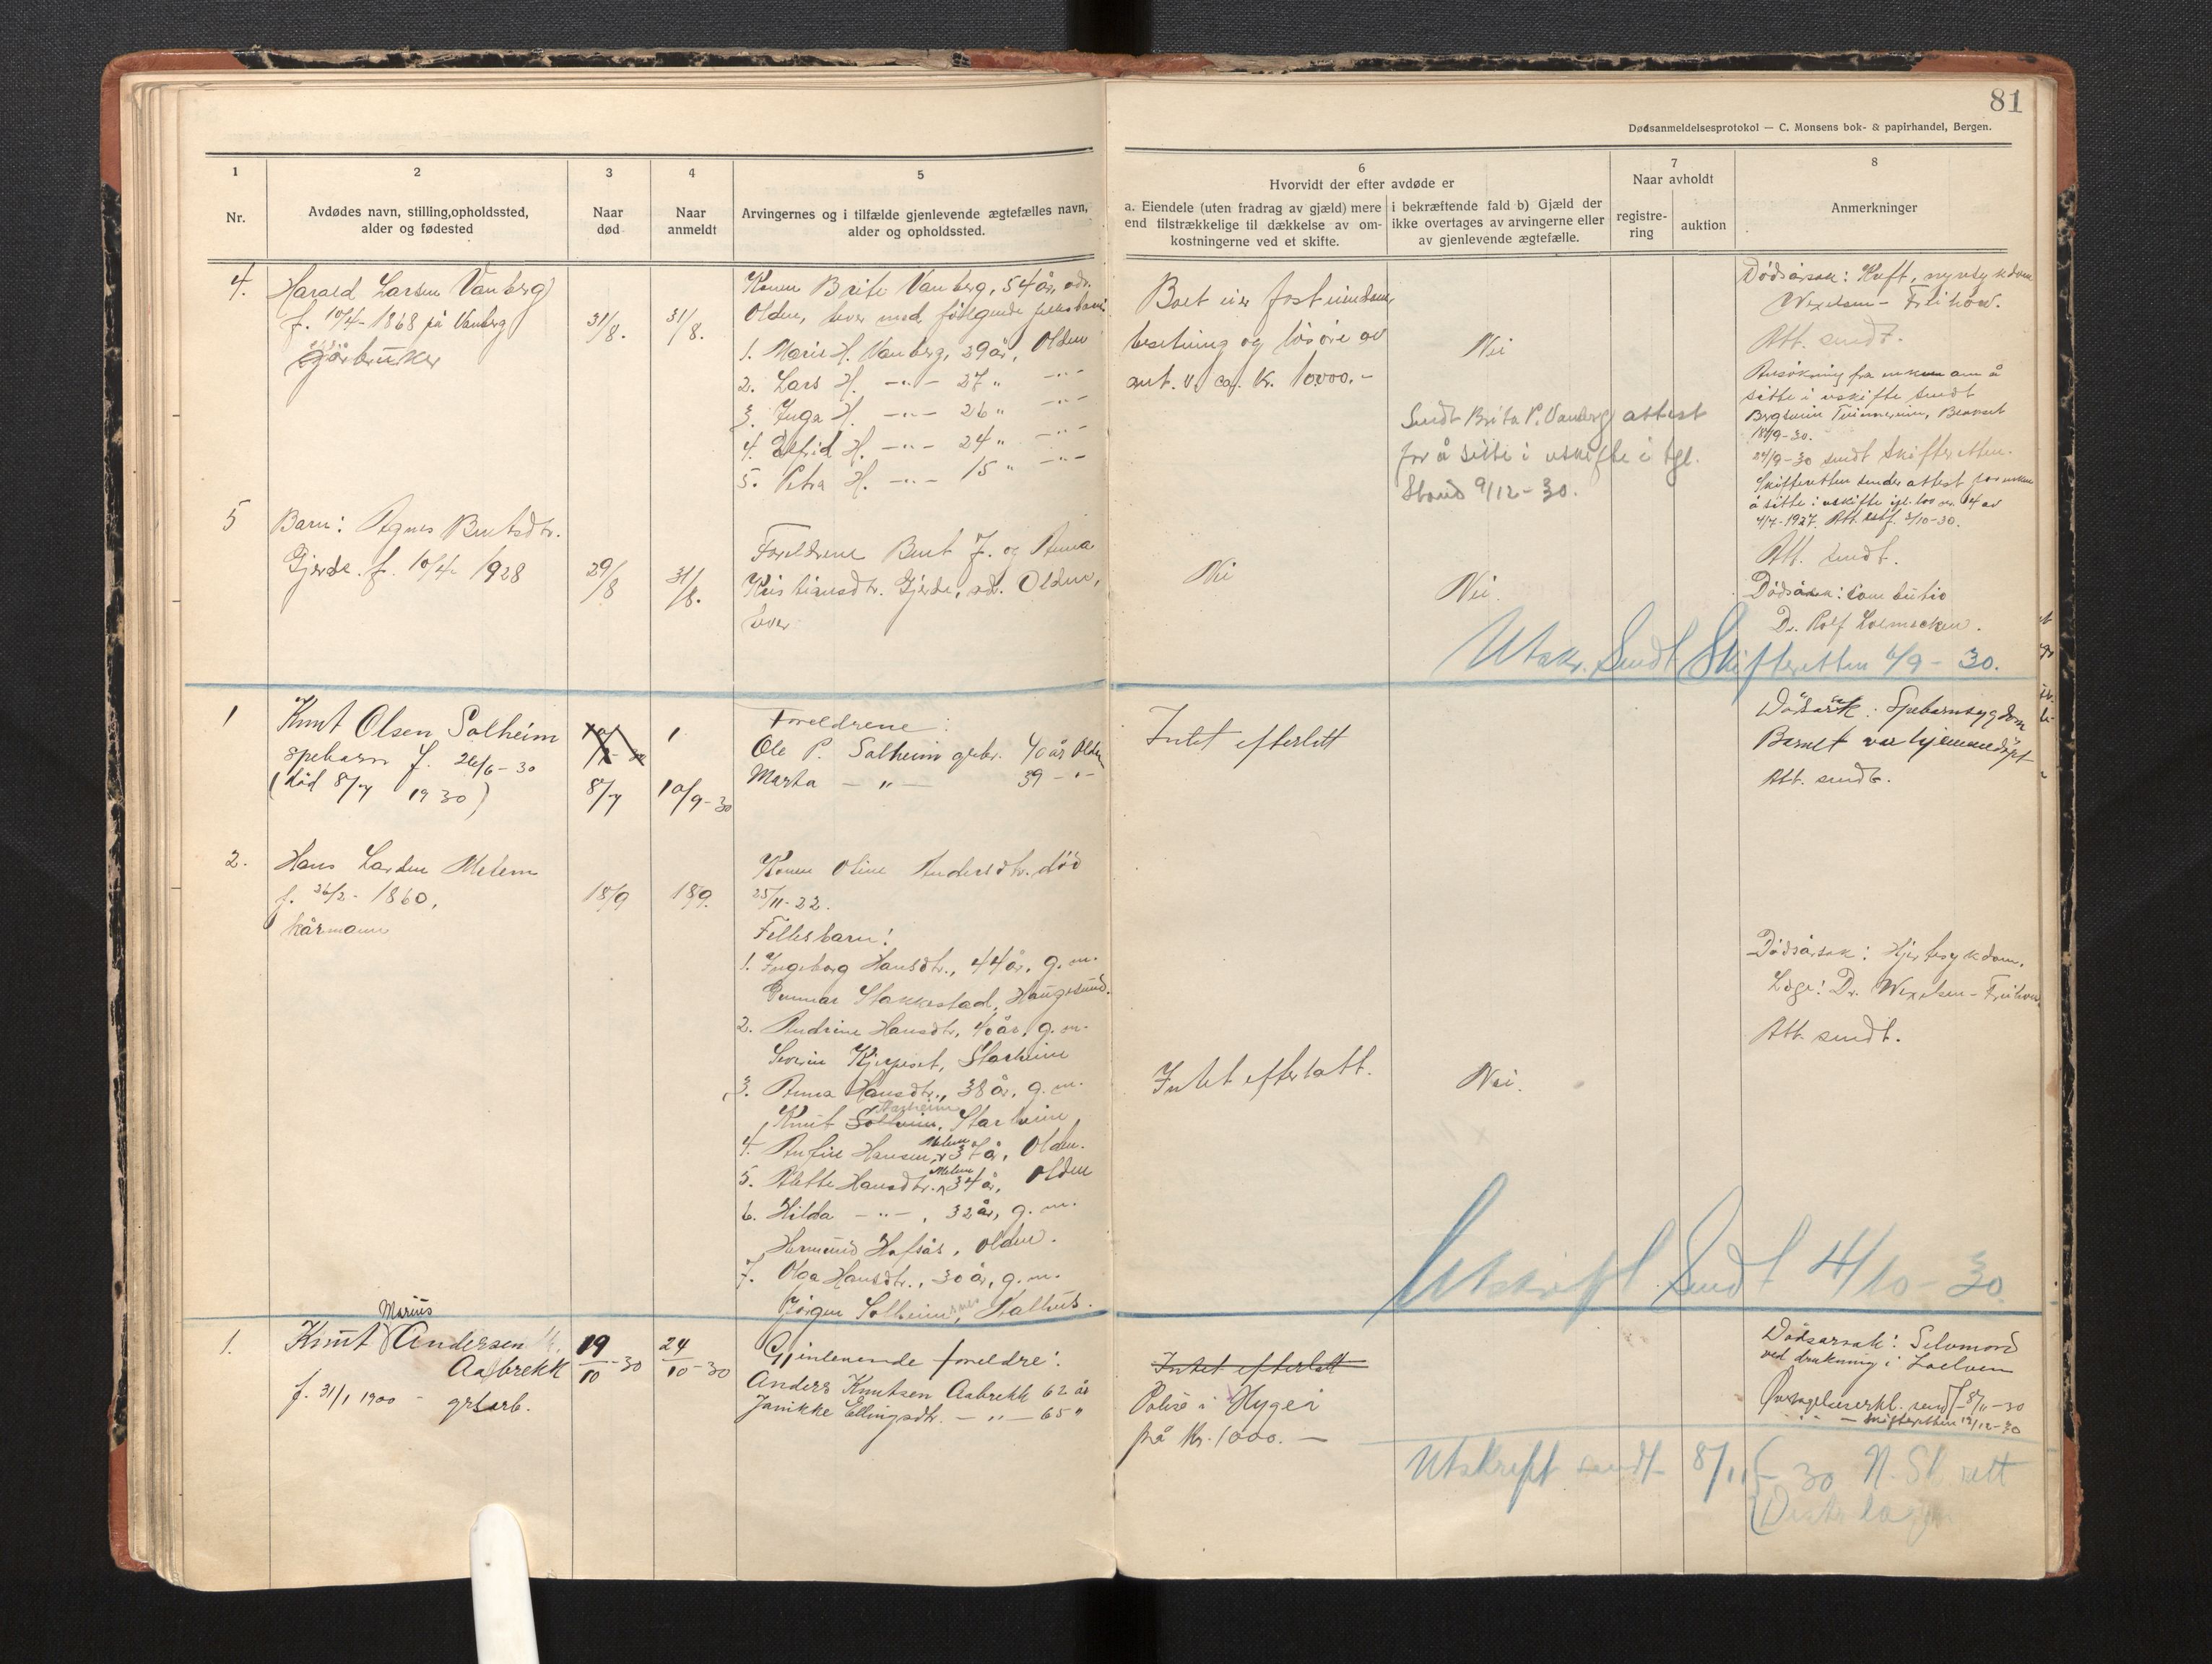 81
Dødsanmeldelsesprotokol — C. Monsens bok- & papirhandel, Bergen.
1
Nr.
2
Avdødes navn, stilling, opholdssted,
alder og fødested
3
Naar
død
4
Naar
anmeldt
5
Arvingernes og i tilfælde gjenlevende ægtefælles navn,
alder og opholdssted.
6
Hvorvidt der efter avdøde er
a. Eiendele (uten fradrag av gjæld) mere
end tilstrækkelige til dækkelse av om-
kostningerne ved et skifte.
i bekræftende fald b) Gjæld der
ikke overtages av arvingerne eller
av gjenlevende ægtefælle.
7
Naar avholdt
registre-
ring
auktion
8
Anmerkninger
4.
Harald Larsen Vanberg
f. 10/4-1868 på Vanberg
gårbruker
31/8.
31/8.
Konen Brite Vanberg, 54 år, adr.
Olden, lever med følgende fellesbarn
1. Marie H. Vanberg, 29 år, Olden
2. Lars H. -"- 27 " -"-
3. Inga H. -"- 26 " -"-
4. H. -"- 24 " -"-
5. Petra H. -"- 15 " -"-
Boet eier fast eiendom,
besetning og løsøre av
ant. v. ca. kr. 10000.-
Nei
Sendt Brita P. Vanberg attest
for å sitte i uskifte i tgl.
Stand 9/12-30.
Dødsårsak: Kreft, nyresykdom
Wexelsen-Freihow.
Att. sendt.
Ansøkning fra enken om å
sitte i uskifte sendt
18/9-30.
24/9-30 sendt Skifteretten.
Skifteretten sender attest for enken
å sitte i uskifte igl. lov nr. 14 av
4/7-1927. Att. 3/10-30.
5
Barn: Agnes Berntsdtr.
Gjerde. f. 10/4- 1928
29/8
31/8.
Foreldrene Bernt J. og Anna
Kristiansdtr. Gjerde, adr. Olden,
lever
Nei
Nei.
Att. sendt.
Dødsårsak: Combustio
Dr. Rolf
Utskr. Sendt Skifteretten 6/9-30.
1
Knut Olsen Solheim
spebarn f. 26/6-30
(død 8/7 1930)
8/7
1
10/9-30
Foreldrene:
Ole P. Solheim grbr. 40 år Olden
Marta - " - 39 - " -
Intet efterlatt
Dødsårsak: Spebarnsygdom
Barnet var hjemmedøpt
Att. sendt.
2.
Hans Larsen Melem
f. 26/2-1860,
kårmann
18/9
18/9.
Konen Oline Andersdtr. død
25/11-22.
Fellesbarn:
1. Ingeborg Hansdtr., 44 år, g. m.
Gunnar Stakkestad, Haugesund.
2. Andrine Hansdtr., 40 år, g. m.
Severin Kjerpeset, Starheim
3. Anna Hansdtr., 38 år, g. m.
Knut Solheim, Starheim
Starheim
4. Anfin Hansen Melem 37 år, Olden.
5. Alette Hansdtr. Melem 34 år, Olden
6. Hilda -"-, 32 år, g. m.
Hermund Hafsås, Olden.
7. Olga Hansdtr., 30 år, g. m.
Jørgen Solheim,
Intet efterlatt.
Nei.
Dødsårsak: Hjertesykdom.
Læge: Dr. Wexelsen-Freihow.
Att. sendt.
Utskrift Sendt 4/10-30.
1.
Knut Marius Andersen
Aabrekk
f. 31/1 1900 - grbarb.
19/10-30
24/10-30
Gjenlevende foreldre:
Anders Knutsen Aabrekk 62 år
Janikke Ellingsdtr. - " - 65 "
Intet efterlatt
Polise i Hygea
på kr. 1000.-
Dødsarsak: Selvmord
ved drukning i Loelven
Overtagelseserkl. sendt 8/11-30
" - Skifteretten 12/12-30
Utskrift sendt 8/11-30 N. Sk rett